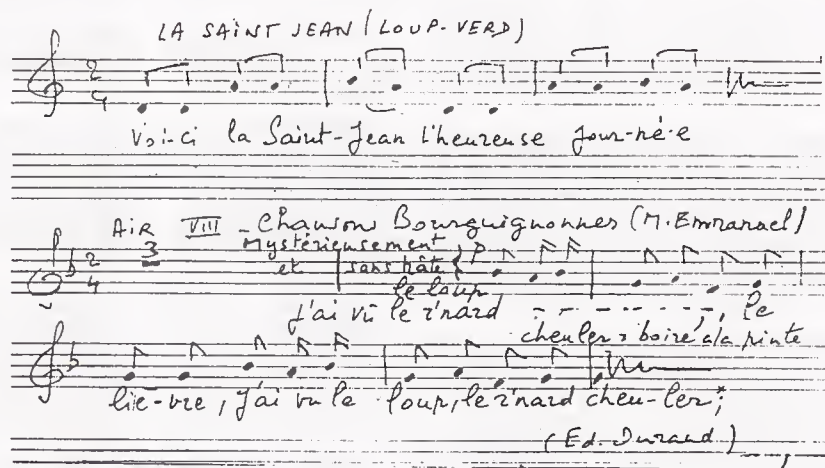 LA SAINT JEAN (LOUP-VERD)
2
4
Voi-ci la Saint-Jean l'heureuse jour-né-e
AIR VIII - Chansons Bourguignonnes (M. Emmanuel)
3
2
4
Mystérieusement
et sans hâte p
le loup
J'ai vu le r'nard - - - - - - - -, le
cheuler = boire à la pinte
liè-vre, j'ai vu le loup, le r'nard cheu-ler*;
(Ed. Durand)